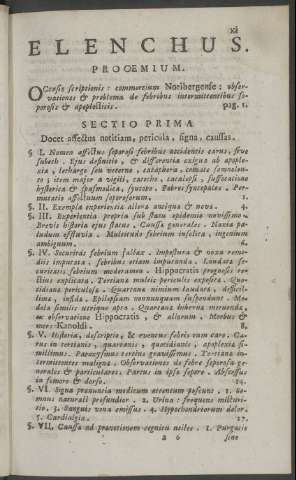 xi
ELENCHUS.
PROOEMIUM.
OCcasio scriptionis: commercium Noribergense: obser-
vationes & problema de febribus intermittentibus so-
porosis & apoplecticis. pag. 1.
SECTIO PRIMA
Docet affectus notitiam, pericula, signa, caussas.
§ I. Nomen affectus soporosi febribus accidentis carus, sive
subeth. Ejus definitio, & differentia exigua ab apople-
xia, lethargo seu veterno, cataphora, comate somnolen-
to; item major a vigili, catocho, catalepsi, suffocatione
hysterica & spasmodica, syncope. Febres syncopales. Per-
mutatio affectuum soporosorum. 1.
§. II. Exempla experientia altera antiqua & nova. 4.
§. III. Experientia propria sub statu epidemio novissimo.
Brevis historia ejus status. Caussa generales: Noxia pa-
ludum effluvia. Multitudo febrium insolita, ingenium
ambiguum. 6.
§. IV. Securitas febrium fallax. Impostura & noxa reme-
diis imputata; febribus etiam imputanda. Laudata se-
curitatis febrium moderamen. Hippocratis prognosis re-
ctius explicata. Tertiana multis periculis exposita. Quo-
tidiana periculosa. Quartana nimium laudata, difficil-
lima, infida. Epilepsiam nonnunquam suspendunt. Mo-
dula similis utrique apta. Quartana hiberna metuenda,
ex observatione Hippocratis, & aliorum. Morbus & 
mors Kanoldi. 8.
§. V. Historia, descriptio, & eventus febris cum caro. Ca-
rus in tertianis, quartanis, quotidianis, apoplexia si-
millimus. Paroxysmus tertius gravissimus. Tertiana in-
termittentes maligna. Observationes de febre soporosa ge-
nerales & particulares. Partus in ipso sopore. Abscessus
in femore & dorso. 14.
§. VI. Signa pronuncia medicum attentum poscunt. 1. So-
mnus naturali profundior. 2. Urina: frequens micturi-
tio. 3. Sanguis vena emissus. 4. Hypochondriorum dolor.
5. Cardialgia. 27.
§. VII. Caussa ad pranotionem cognitu utiles. 1. Purgatio
a 6 sine